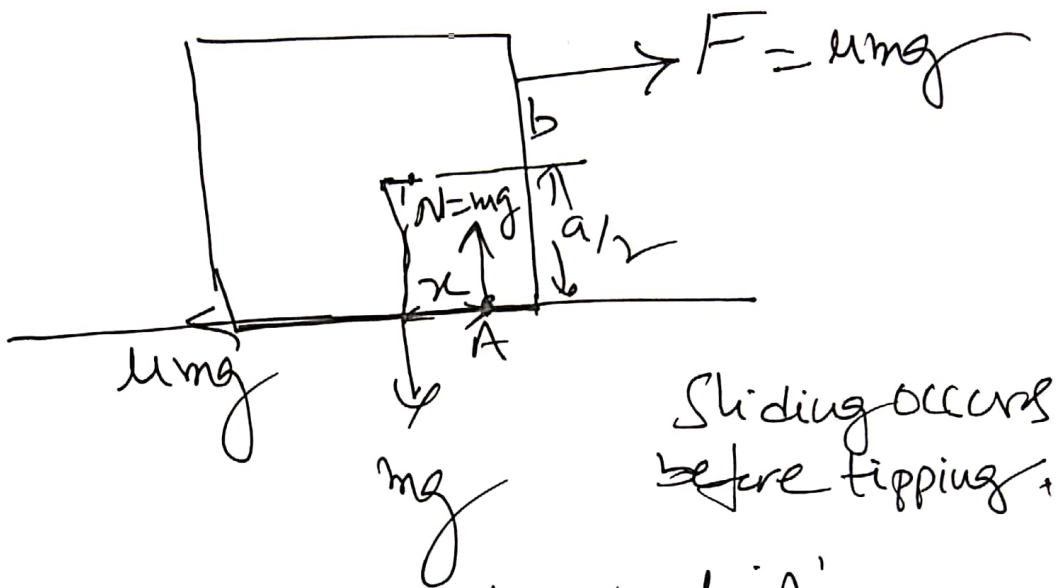 F = μmg
b
N=mg
a/2
x
A
μmg
mg
Sliding occurs
before tipping.
'A'